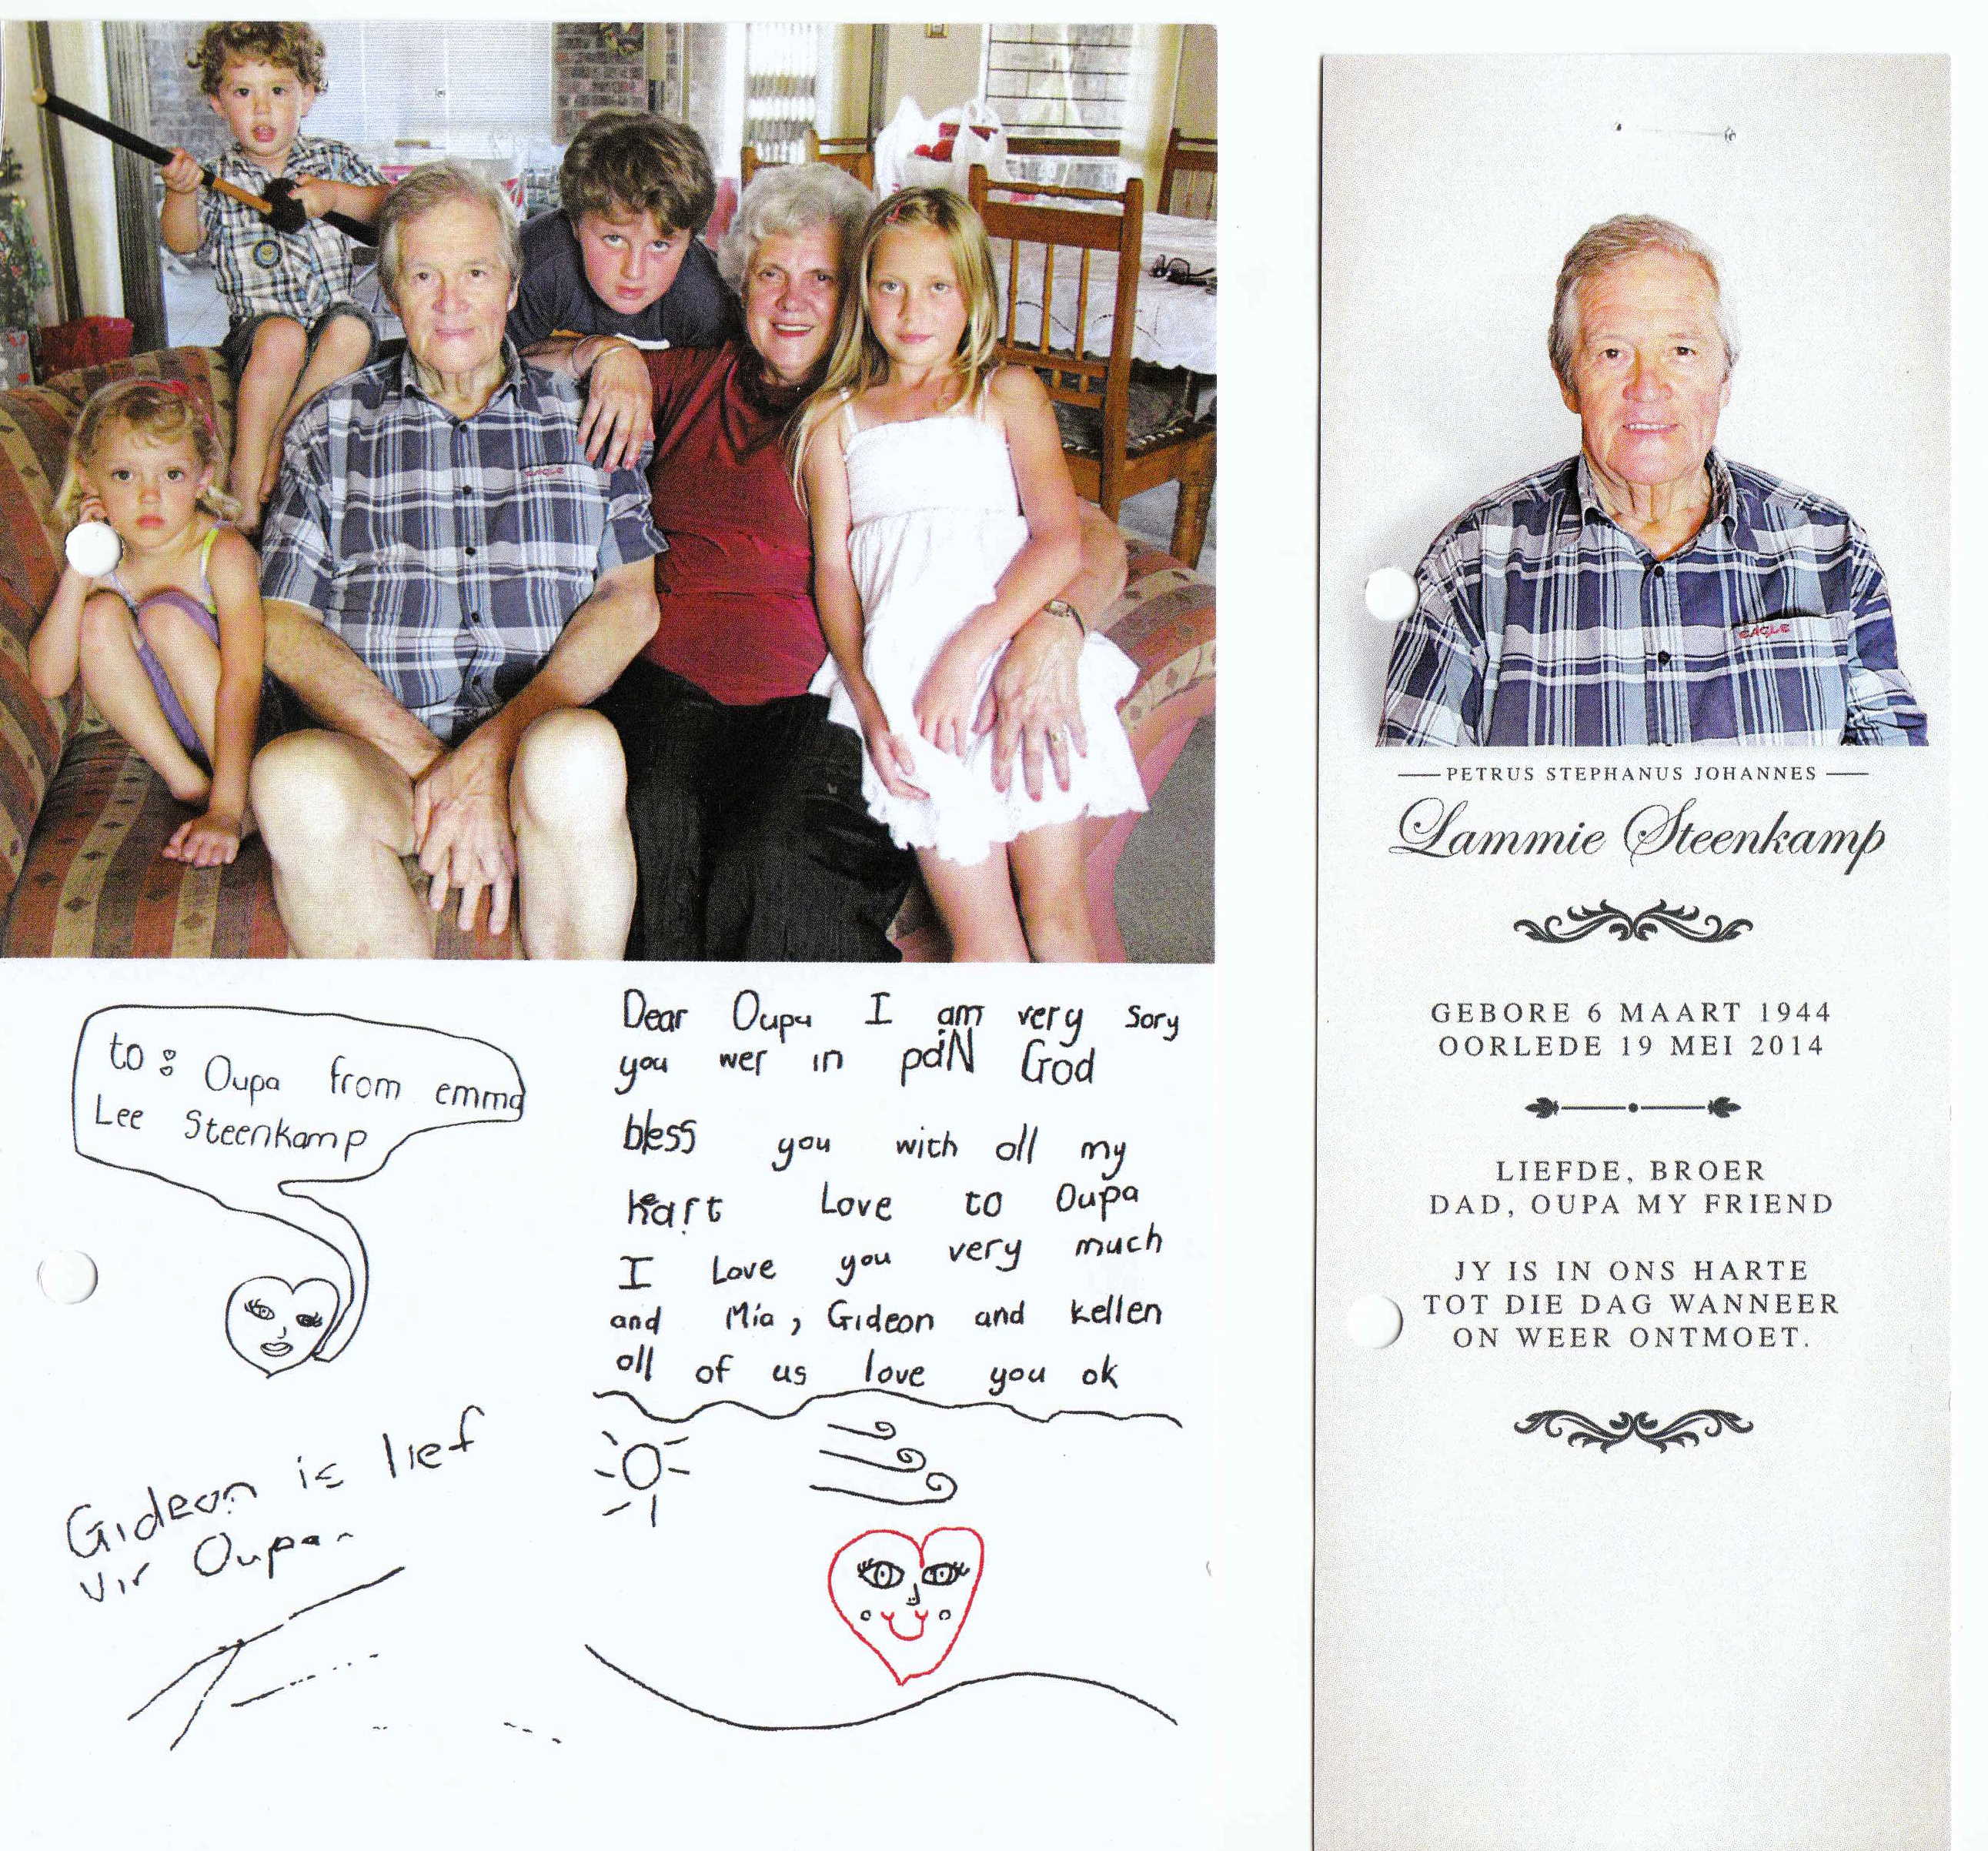 EAGLE
to: Oupa from emma
Lee Steenkamp
Dear Oupa I am very sory
you wer in paiN God
bless you with all my
heart Love to Oupa
I Love you very much
and Mia, Gideon and kellen
all of us love you ok
Gideon is lief
vir Oupa.
EAGLE
PETRUS STEPHANUS JOHANNES
Lammie Steenkamp
GEBORE 6 MAART 1944
OORLEDE 19 MEI 2014
LIEFDE, BROER
DAD, OUPA MY FRIEND
JY IS IN ONS HARTE
TOT DIE DAG WANNEER
ON WEER ONTMOET.